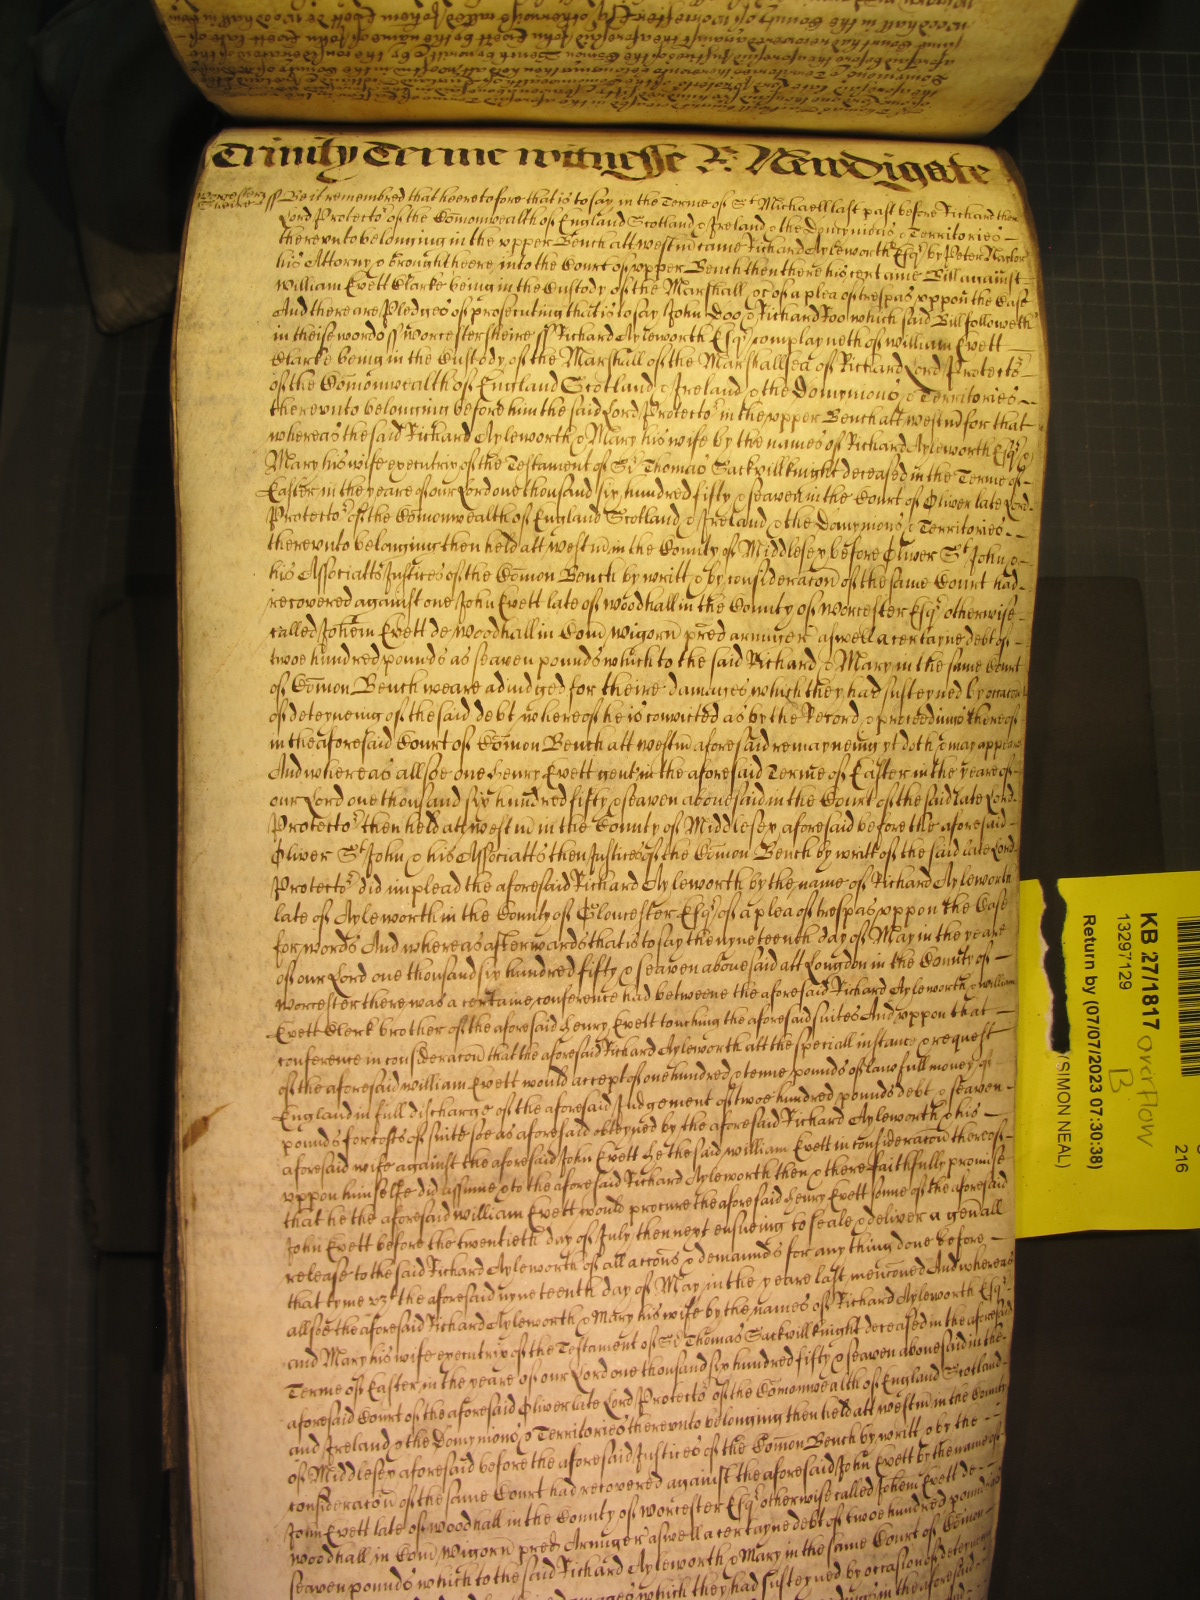 Trinity Terme witnesse R: Newdigate
Worcester
sheire ss Be it remembred that heeretofore that is to say in the Terme of St Michaell last past before Richard then
Lord Protector of the Comonwealth of England Scotland & Ireland & the Dominions & Territories
therevnto belonging in the vpper Bench att westm came Richard Ayleworth Esqr by Peter Naylor
his Attorny & brought heere into the Court of vpper Bench then there his certaine Bill against
William Evett Clarke being in the Custody of the Marshall &c of a plea of trespas vppon the Case
And there are Pledges of prosecuting that is to say John Doo & Richard Roo which said Bill followeth
in theise words ss Worcestersheire ss Richard Ayleworth Esqr complayneth of William Evett
Clarke being in the Custody of the Marshall of the Marshallsea of Richard Lord Protector
of the Comonwealth of England Scotland & Ireland & the Dominyons & Territories
therevnto belonging before him the said Lord Protector in the vpper Bench att westm for that
whereas the said Richard Ayleworth & Mary his wife by the names of Richard Ayleworth Esqr &
Mary his wife executrix of the Testament of Sr Thomas Sackvill knight deceased in the Terme of
Easter in the yeare of our Lord one thousand six hundred fifty & seaven in the Court of Oliver late Lord
Protector of the Comonwealth of England Scotland & Ireland & the Dominyons & Territories
therevnto belonging then held att westm in the County of Middlesex before Oliver St John &
his Associatts Justices of the Comon Bench by writt & by consideracon of the same Court had
recovered against one John Evett late of Woodhall in the County of Worcester Esqr otherwise
called Johem Evett de Woodhall in Com Wigorn pred armiger aswell a certayne debt of
twoe hundred pounds as seaven pounds which to the said Richard & Mary in the same Court
of Comon Bench weare adiudged for theire damages which they had susteyned by occacon
of deteyneing of the said debt whereof he is convicted as by the Record & proceedings thereof
in the aforesaid Court of Comon Bench att westm aforesaid remayneing yt doth & may appeare
And whereas allsoe one Henry Evett gent in the aforesaid Terme of Easter in the yeare of
our Lord one thousand six hundred fifty & seaven abouesaid in the Court of the said late Lord
Protector then held att westm in the County of Middlesex aforesaid before the aforesaid
Oliver St John & his Associatts then Justices of the Comon Bench by writt of the said late Lord
Protector did implead the aforesaid Richard Ayleworth by the name of Richard Ayleworth
late of Ayleworth in the County of Gloucester Esqr of a plea of trespas vppon the Case
for words And whereas afterwards that is to say the nyneteenth day of May in the yeare
of our Lord one thousand six hundred fifty & seaven abouesaid att Longdon in the County of
Worcester there was a certaine conference had betweene the aforesaid Richard Ayleworth & William
Evett Clerk brother of the aforesaid Henry Evett touching the aforesaid suites And vppon that
conference in consideracon that the aforesaid Richard Ayleworth att the speciall instance & request
of the aforesaid William Evett would accept of one hundred & tenne pounds of lawfull money of
England in full discharge of the aforesaid Judgement of twoe hundred pounds debt & seaven
pounds for costs of suite soe as aforesaid obteyned by the aforesaid Richard Ayleworth & his
aforesaid wife against the aforesaid John Evett he the said William Evett in consideracon thereof
vppon himselfe did assume & to the aforesaid Richard Ayleworth then & there faithfully promise
that he the aforesaid William Evett would procure the aforesaid Henry Evett sonne of the aforesaid
John Evett before the twentieth day of July then next ensueing to seale & deliver a genall
release to the said Richard Ayleworth of all accons & demannds for any thing done before
that tyme vzt the aforesaid nyneteenth day of May in the yeare last menconed And whereas
allsoe the aforesaid Richard Ayleworth & Mary his wife by the names of Richard Ayleworth Esqr
and Mary his wife executrix of the Testament of Sr Thomas Sackvill knight deceased in the aforesaid
Terme of Easter in the yeare of our Lord one thousand six hundred fifty & seaven abouesaid in the
aforesaid Court of the aforesaid Oliver late Lord Protector of the Comonwealth of England Scotland
and Ireland & the Dominyons & Territories therevnto belonging then held att westm in the County
of Middlesex aforesaid before the aforesaid Justices of the Comon Bench by writt & by the
consideracon of the same Court had recovered against the aforesaid John Evett by the name of
John Evett late of Woodhall in the County of Worcester Esqr otherwise called Johem Evett de
Woodhall in Com Wigorn pred Armiger aswell a certayne debt of twoe hundred pounds as
seaven pounds which to the said Richard Ayleworth & Mary in the same Court of Comon
which they had susteyned by occasion of deteyneing
in the aforesaid
KB 27/1817 overflow
B
13297129
Return by (07/07/2023 07:30:38)
(SIMON NEAL)
216